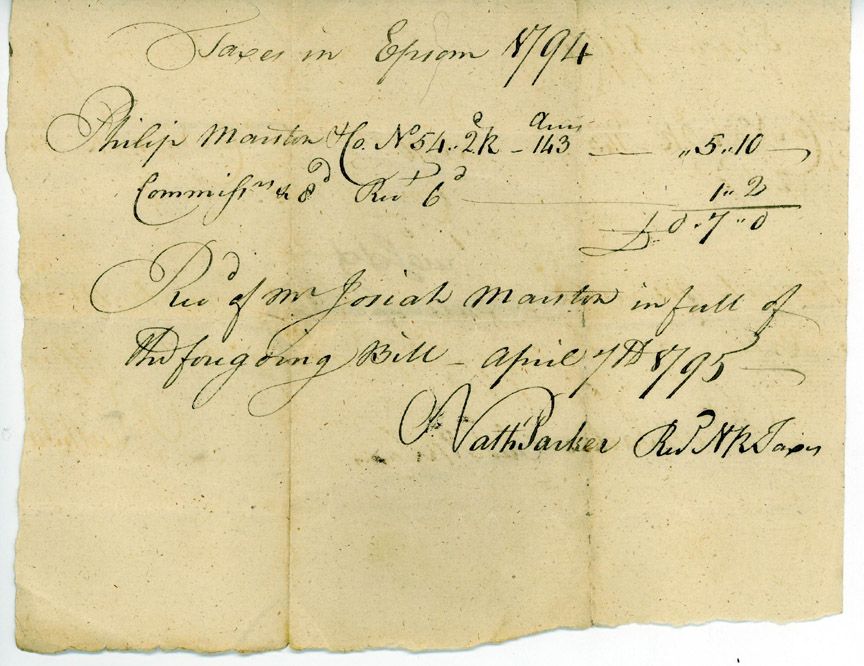 Taxes in Epsom 1794
Philip Marston & Co. No 54.. 2d R - Acres 143 — ,,5,,10
Commissns & 8d Rect 6d 1,,2
£0,,7,,0
Recd of Mr Josiah Marston in full of
the foregoing Bill - April 7th 1795
Nath Parker Recr N R Taxes